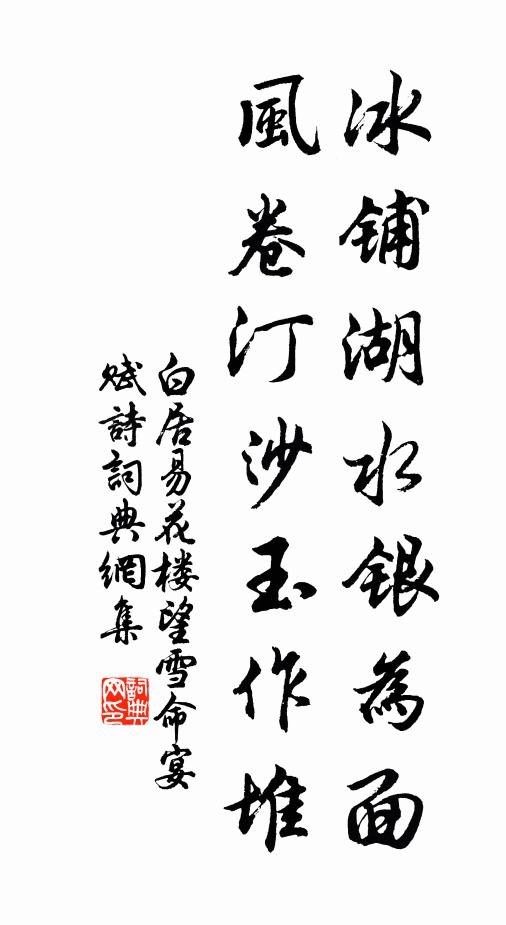 冰鋪湖水銀為面
風卷汀沙玉作堆
白居易花楼望雪命宴
賦詩詞典網集
詞典
网印